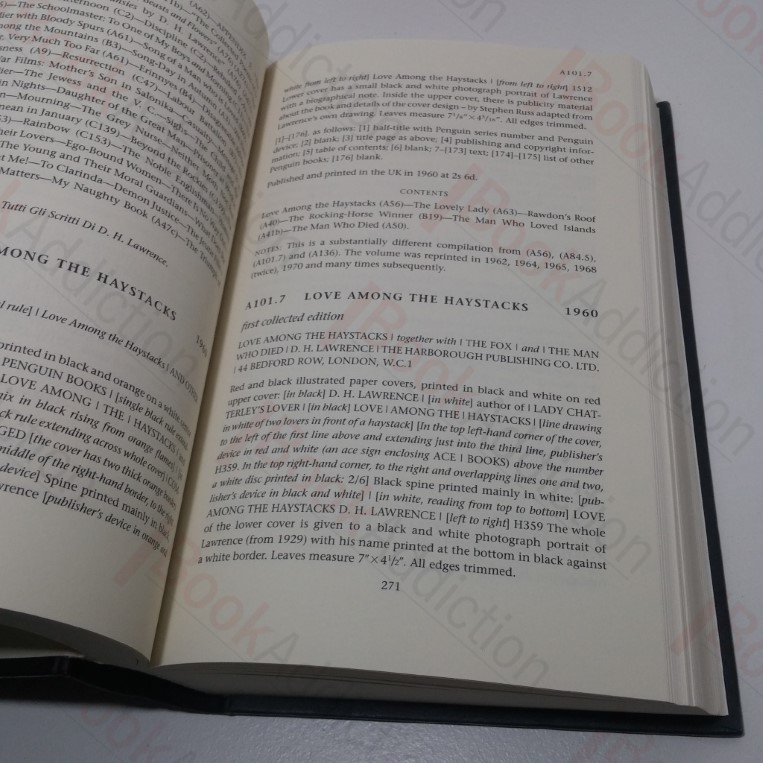 (A62)—Appendix
Afternoon (C2)—Discipline (C2)—The Collected Poems
Pansies by D. H. Lawrence
Beasts and Flowers (A76)
6)—The Schoolmaster: To One of My Boys
lier with Bloody Spurs (A61)—Song of a Man who is
mong the Mountains (B3)—Song-Day in Autumn
r, Very Much Too Far (A61)—Erinnyes
sness (A9)—Resurrection (C47)—Labour Battalion
ar Films: Mother's Son in Salonika
lier—The Jewess and the V. C.—Sighs—The
n Nights—Daughter of the Great Man—Prisoner
n—Mourning—The Grey Nurse—Neither
nean in January (C139)—Beyond the Rockies
53)—Rainbow (C153)—The Noble Englishman
heir Lovers—Ego-Bound Women—There Is No
The Young and Their Moral Guardians—What
t Me!—To Clarinda—Demon Justice—The Jeune
Matters—My Naughty Book (A47c)—The
Tutti Gli Scritti Di D. H. Lawrence.
AMONG THE HAYSTACKS 1960
l rule] | Love Among the Haystacks | AND OTHER
printed in black and orange on a white
PENGUIN BOOKS | [single black rule
LOVE AMONG | THE | HAYSTACKS |
nix in black rising from orange flames]
k rule extending across whole cover] |
GED [the cover has two thick orange borders,
middle of the right-hand border, to the right
device] Spine printed mainly in black,
wrence [publisher's device in orange and
A101.7
white from left to right] Love Among the Haystacks | [from left to right] 1512
Lower cover has a small black and white photograph portrait of Lawrence
with a biographical note. Inside the upper cover, there is publicity material
about the book and details of the cover design – by Stephen Russ adapted from
Lawrence's own drawing. Leaves measure 7⅛″×4⁵⁄₁₆″. All edges trimmed.
[1]–[176], as follows: [1] half-title with Penguin series number and Penguin
device; [2] blank; [3] title page as above; [4] publishing and copyright infor-
mation; [5] table of contents; [6] blank; 7–[173] text; [174]–[175] list of other
Penguin books; [176] blank.
Published and printed in the UK in 1960 at 2s 6d.
CONTENTS
Love Among the Haystacks (A56)—The Lovely Lady (A63)—Rawdon's Roof
(A40)—The Rocking-Horse Winner (B19)—The Man Who Loved Islands
(A41b)—The Man Who Died (A50).
NOTES: This is a substantially different compilation from (A56), (A84.5),
(A101.7) and (A136). The volume was reprinted in 1962, 1964, 1965, 1968
(twice), 1970 and many times subsequently.
A101.7 LOVE AMONG THE HAYSTACKS 1960
first collected edition
LOVE AMONG THE HAYSTACKS | together with | THE FOX | and | THE MAN
WHO DIED | D. H. LAWRENCE | THE HARBOROUGH PUBLISHING CO. LTD.
| 44 BEDFORD ROW, LONDON, W.C.1
Red and black illustrated paper covers, printed in black and white on red
upper cover: [in black] D. H. LAWRENCE | [in white] author of | LADY CHAT-
TERLEY'S LOVER | [in black] LOVE | AMONG THE | HAYSTACKS | [line drawing
in white of two lovers in front of a haystack] [In the top left-hand corner of the cover,
to the left of the first line above and extending just into the third line, publisher's
device in red and white (an ace sign enclosing ACE | BOOKS) above the number
H359. In the top right-hand corner, to the right and overlapping lines one and two,
a white disc printed in black: 2/6] Black spine printed mainly in white: [pub-
lisher's device in black and white] | [in white, reading from top to bottom] LOVE
AMONG THE HAYSTACKS D. H. LAWRENCE | [left to right] H359 The whole
of the lower cover is given to a black and white photograph portrait of
Lawrence (from 1929) with his name printed at the bottom in black against
a white border. Leaves measure 7″×4½″. All edges trimmed.
271